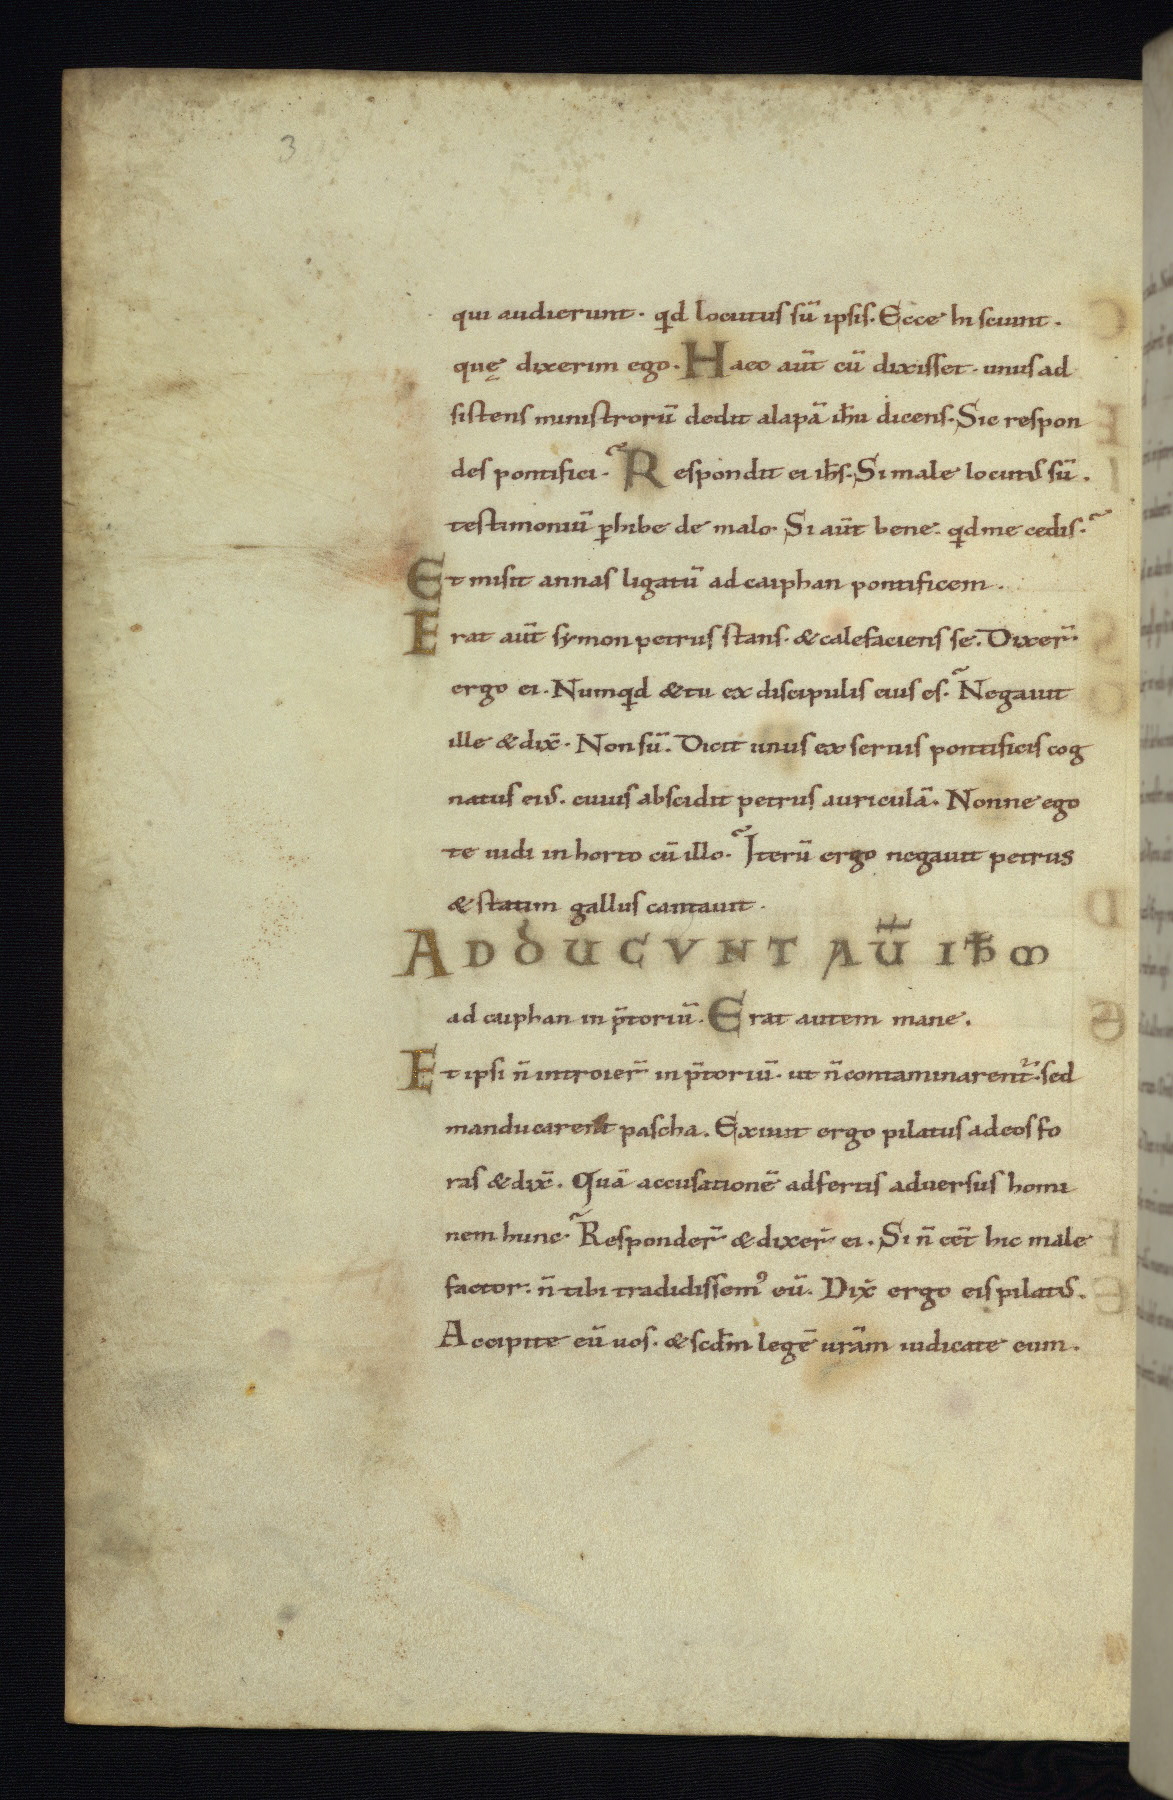 3
qui audierunt. qd locutus sū ipsis. Ecce hi sciunt.
quę dixerim ego. Haec aūt cū dixisset. unus ad
sistens ministrorū dedit alapā ihu dicens. Sic respon
des pontifici. Respondit ei ihs. Si male locutus sū.
testimoniū phibe de malo. Si aūt bene. qd me cedis.
Et misit annas ligatū ad caiphan pontificem.
Erat aūt symon petrus stans. & calefaciens se. Dixer̄
ergo ei. Numqd & tu ex discipulis eius es. Negauit
ille & dix̄. Non sū. Dicit unus ex seruis pontificis cog
natus eius. cuius abscidit petrus auriculā. Nonne ego
te uidi in horto cū illo. Iterū ergo negauit petrus
& statim gallus cantauit.
ADDUCVNT AŪ IHM
ad caiphan in p̄toriū. Erat autem mane.
Et ipsi n̄ introier̄ in p̄toriū. ut n̄ contaminarent̄. sed
manducarent pascha. Exiuit ergo pilatus ad eos fo
ras & dix̄. Quā accusationē adfertis aduersus homi
nem hunc. Responder̄ & dixer̄ ei. Si n̄ eēt hic male
factor. n̄ tibi tradidissemꝰ eū. Dix̄ ergo eis pilatus.
Accipite eū uos. & scdm legē urām iudicate eum.